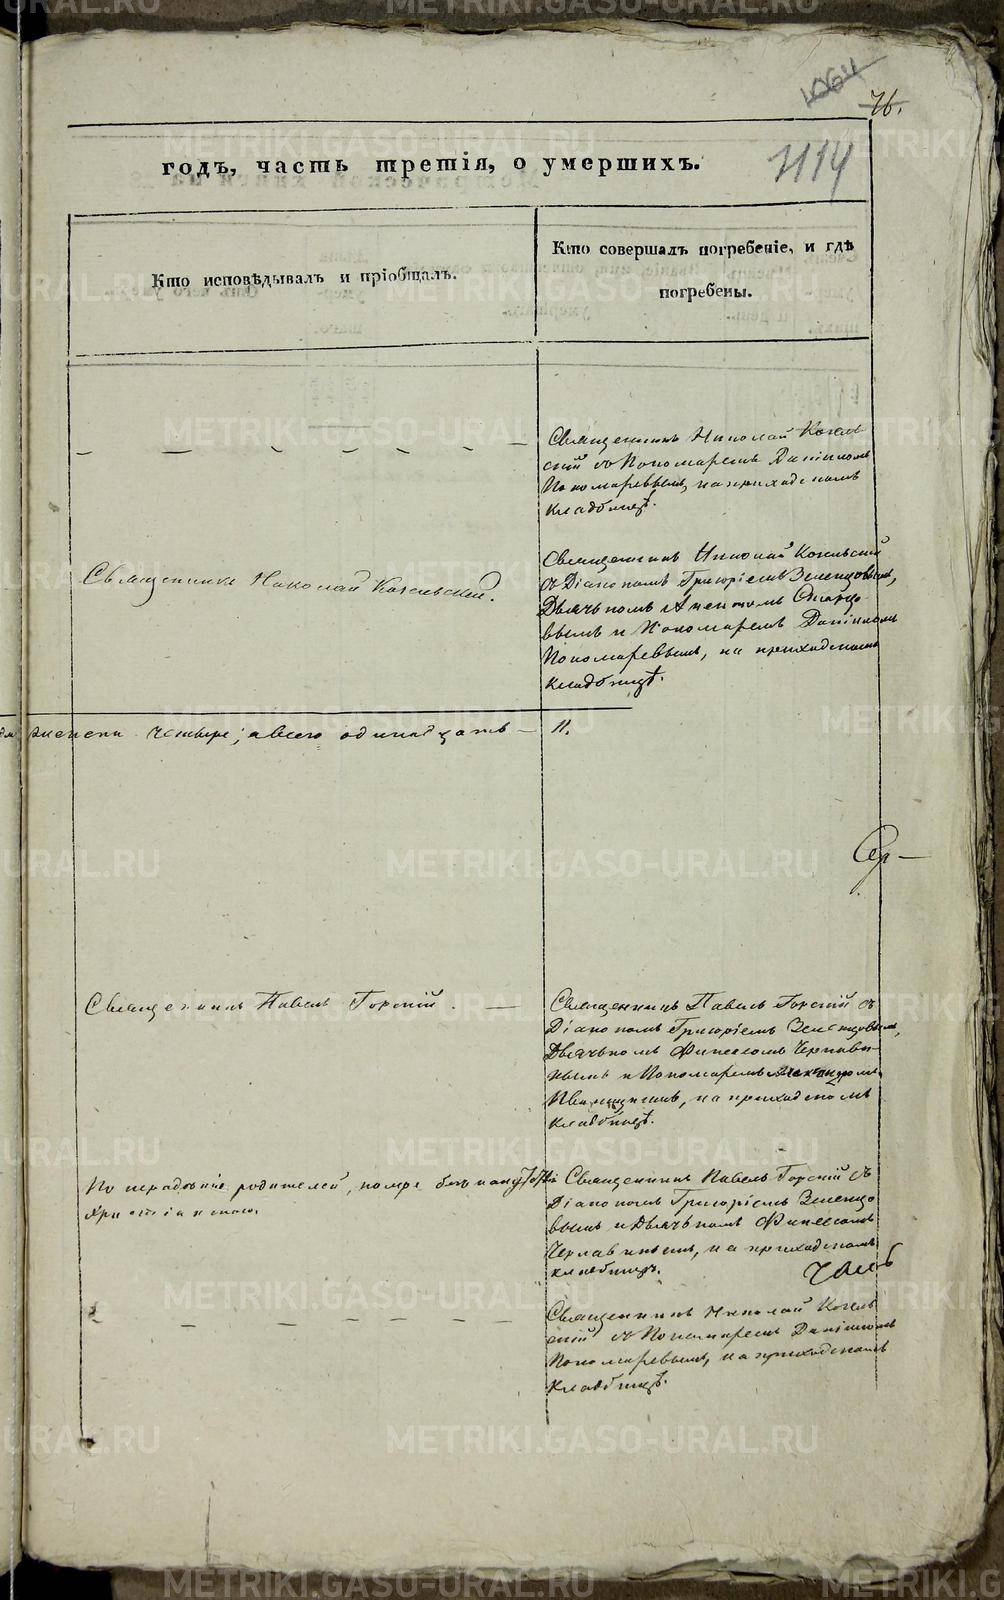 76.
1114
годъ, часть третія, о умершихъ.
Кто исповѣдывалъ и пріобщалъ.
Кто совершалъ погребеніе, и гдѣ
погребены.
Священникъ Николай
скій съ Пономаремъ Даніиломъ
Пономаревымъ, на приходскомъ
кладбищѣ.
Священникъ Николай
Священникъ Николай
съ Діакономъ Григоріемъ Зеленцовымъ,
Дьячькомъ
вымъ и Пономаремъ Даніиломъ
Пономаревымъ, на приходскомъ
кладбищѣ.
четыре; а всего одинадцать — 11.
Священникъ Павелъ Горскій. —
Священникъ Павелъ Горскій съ
Діакономъ Григоріемъ Зеленцовымъ,
Дьячькомъ Финеесомъ
и Пономаремъ Александромъ
на приходскомъ
кладбищѣ.
По нерадѣнію родителей, помре безъ напутствія
христіанскаго.
Священникъ Павелъ Горскій съ
Діакономъ Григоріемъ Зеленцо
вымъ и Дьячькомъ Финеесомъ
на приходскомъ
кладбищѣ.
Священникъ Николай
скій съ Пономаремъ Даніиломъ
Пономаревымъ, на приходскомъ
кладбищѣ.
METRIKI.GASO-URAL.RU